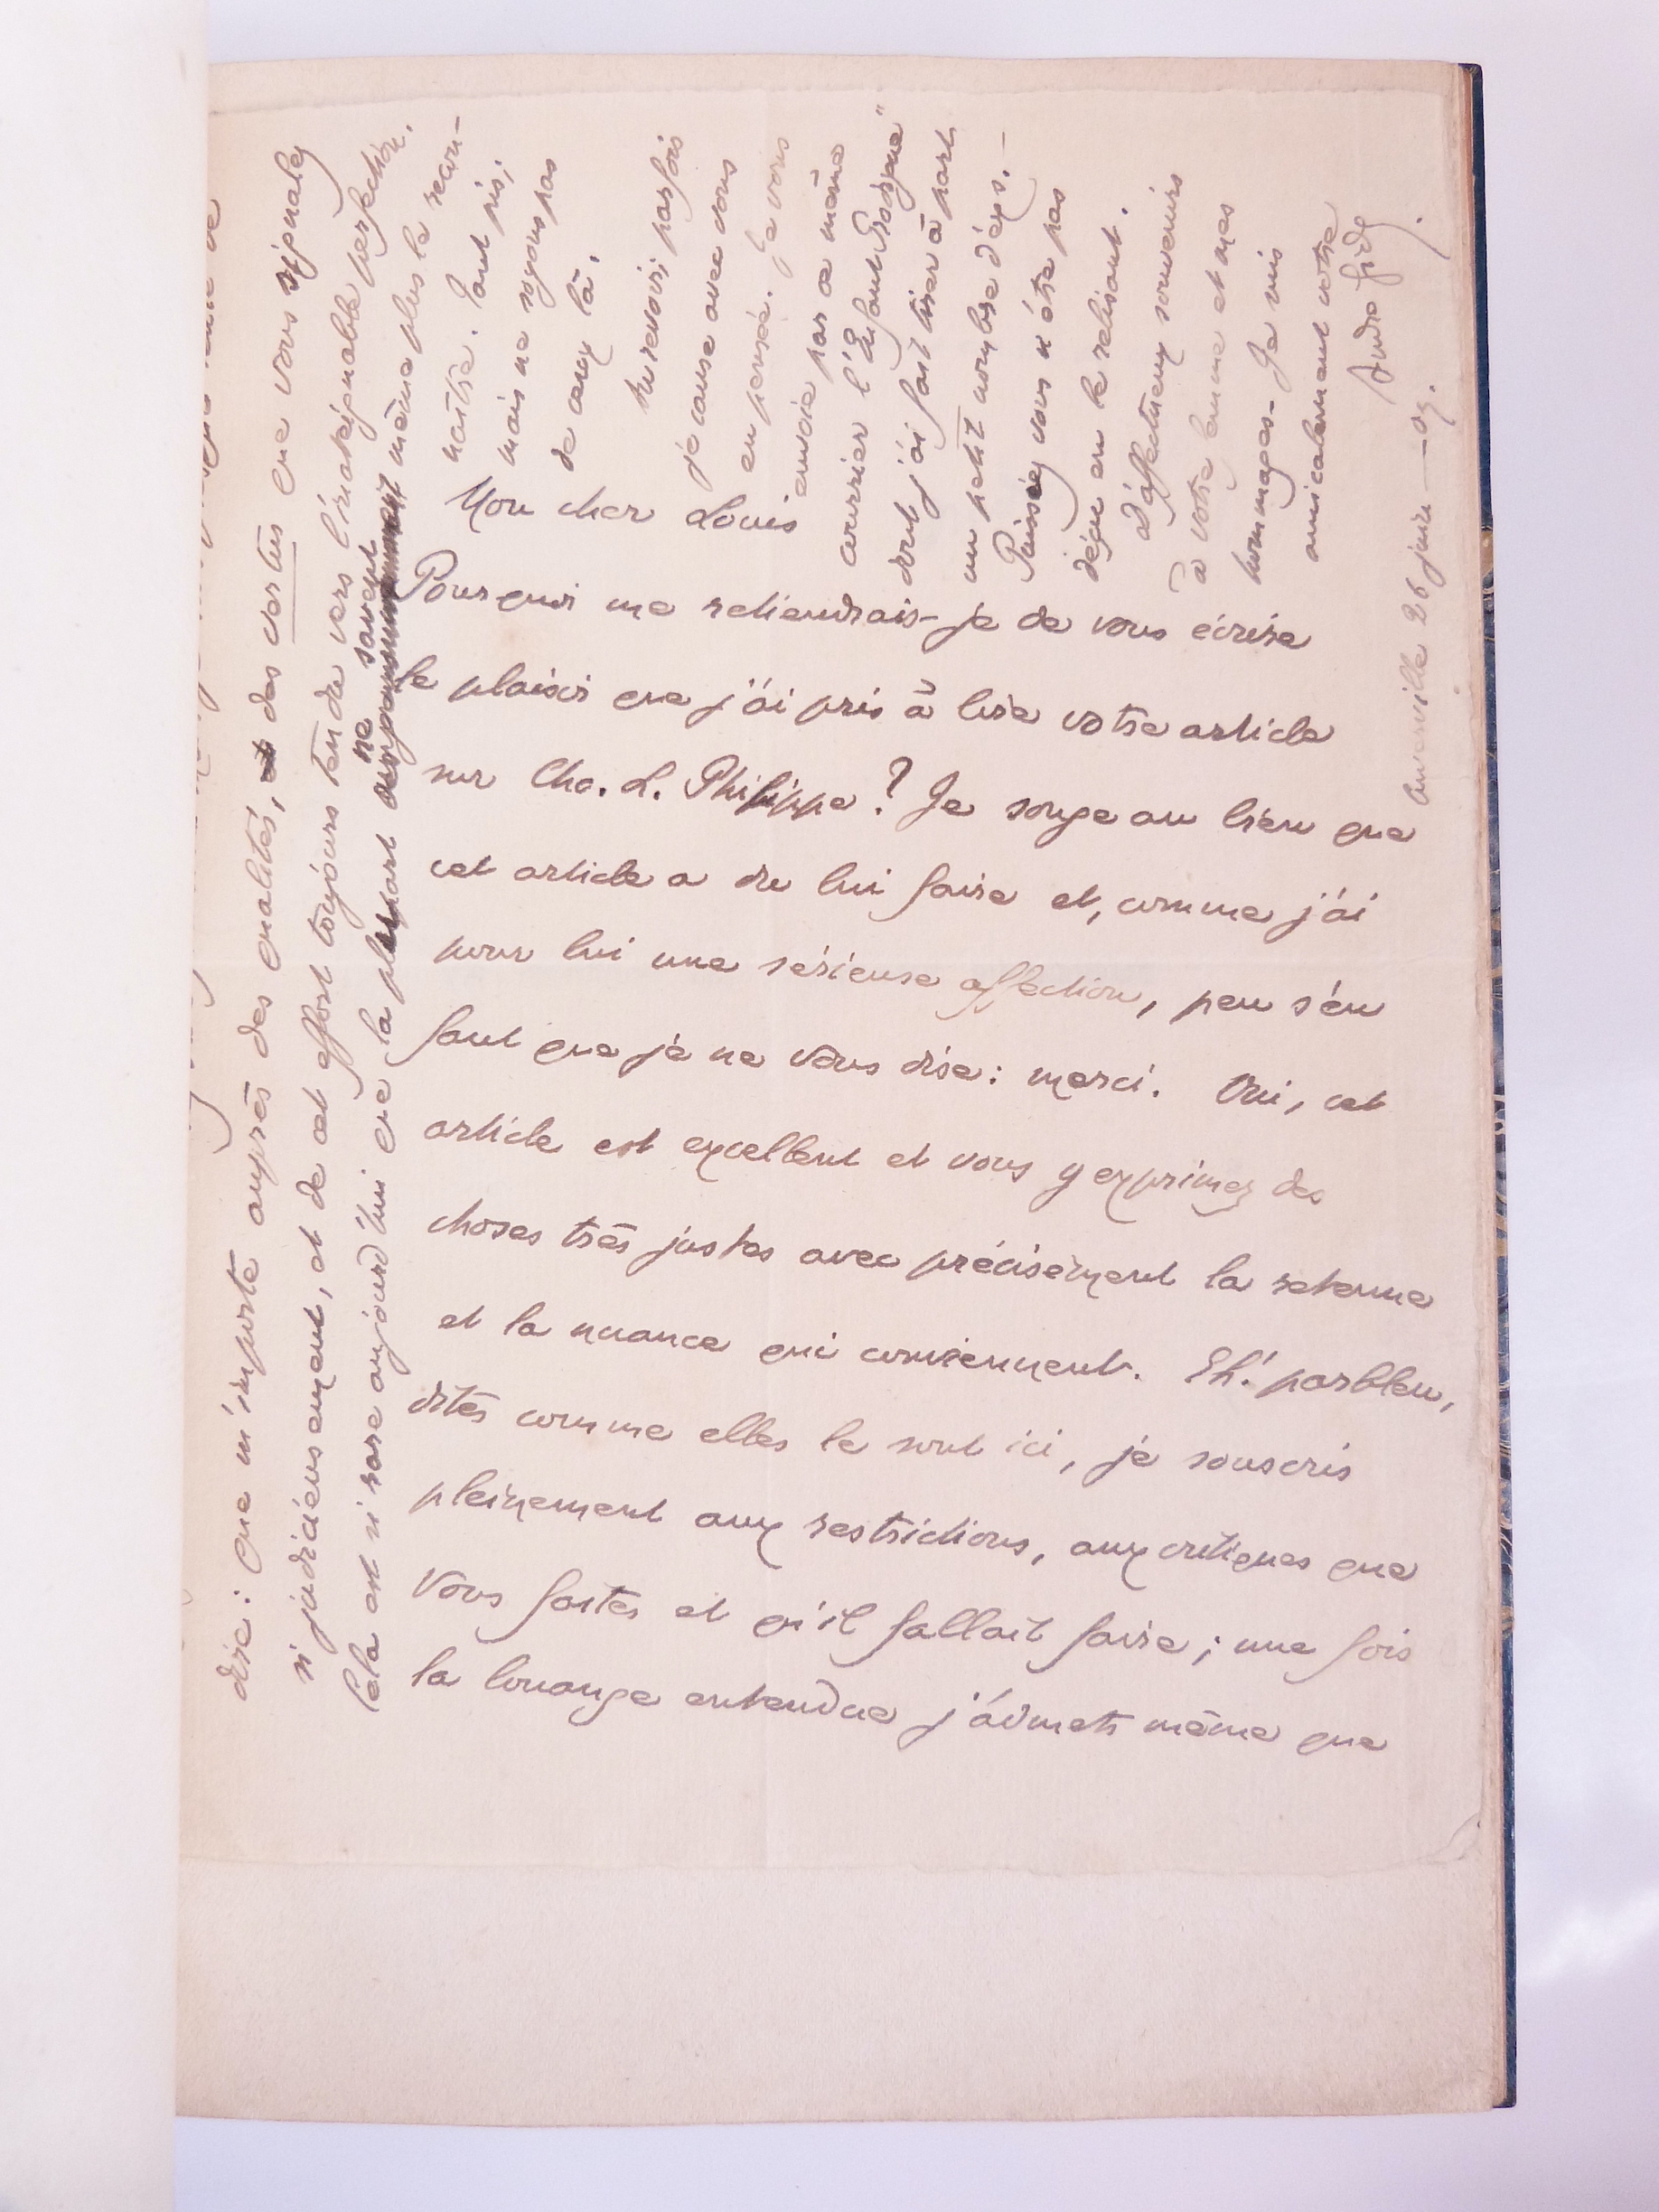 Mon cher Louis
Pourquoi me retiendrais-je de vous écrire
le plaisir que j'ai pris à lire votre article
sur Cha. L. Philippe ? Je songe au bien que
cet article a du lui faire et, comme j'ai
pour lui une sérieuse affection, peu s'en
faut que je ne vous dise : merci. Oui, cet
article est excellent et vous y exprimez des
choses très justes avec précisément la retenue
et la nuance qui conviennent. Eh! parbleu,
dites comme elles le sont ici, je souscris
pleinement aux restrictions, aux critiques que
vous faites et qu'il fallait faire ; une fois
la louange entendue j'admets même que
dise : Que m'importe auprès des qualités, des vertus que vous signalez
si judicieusement, et de cet effort toujours tendu vers l'inatteignable perfection.
Cela est si rare aujourd'hui que la plupart ne savent même plus le recon-
naître. Tant pis ;
mais ne soyons pas
de ceux là.
tu revoir, parfois
je cause avec vous
en pensée. Je vous
envoie par ce même
courrier l'Enfant Prodigue"
dont j'ai fait tirer à part
un petit nombre d'exs. —
Puissiez vous n'être pas
déçu en le relisant.
d'affectueux souvenirs
à votre femme et mes
hommages. Je suis
amicalement votre
André Gide.
Cuverville 26 juin — 09.